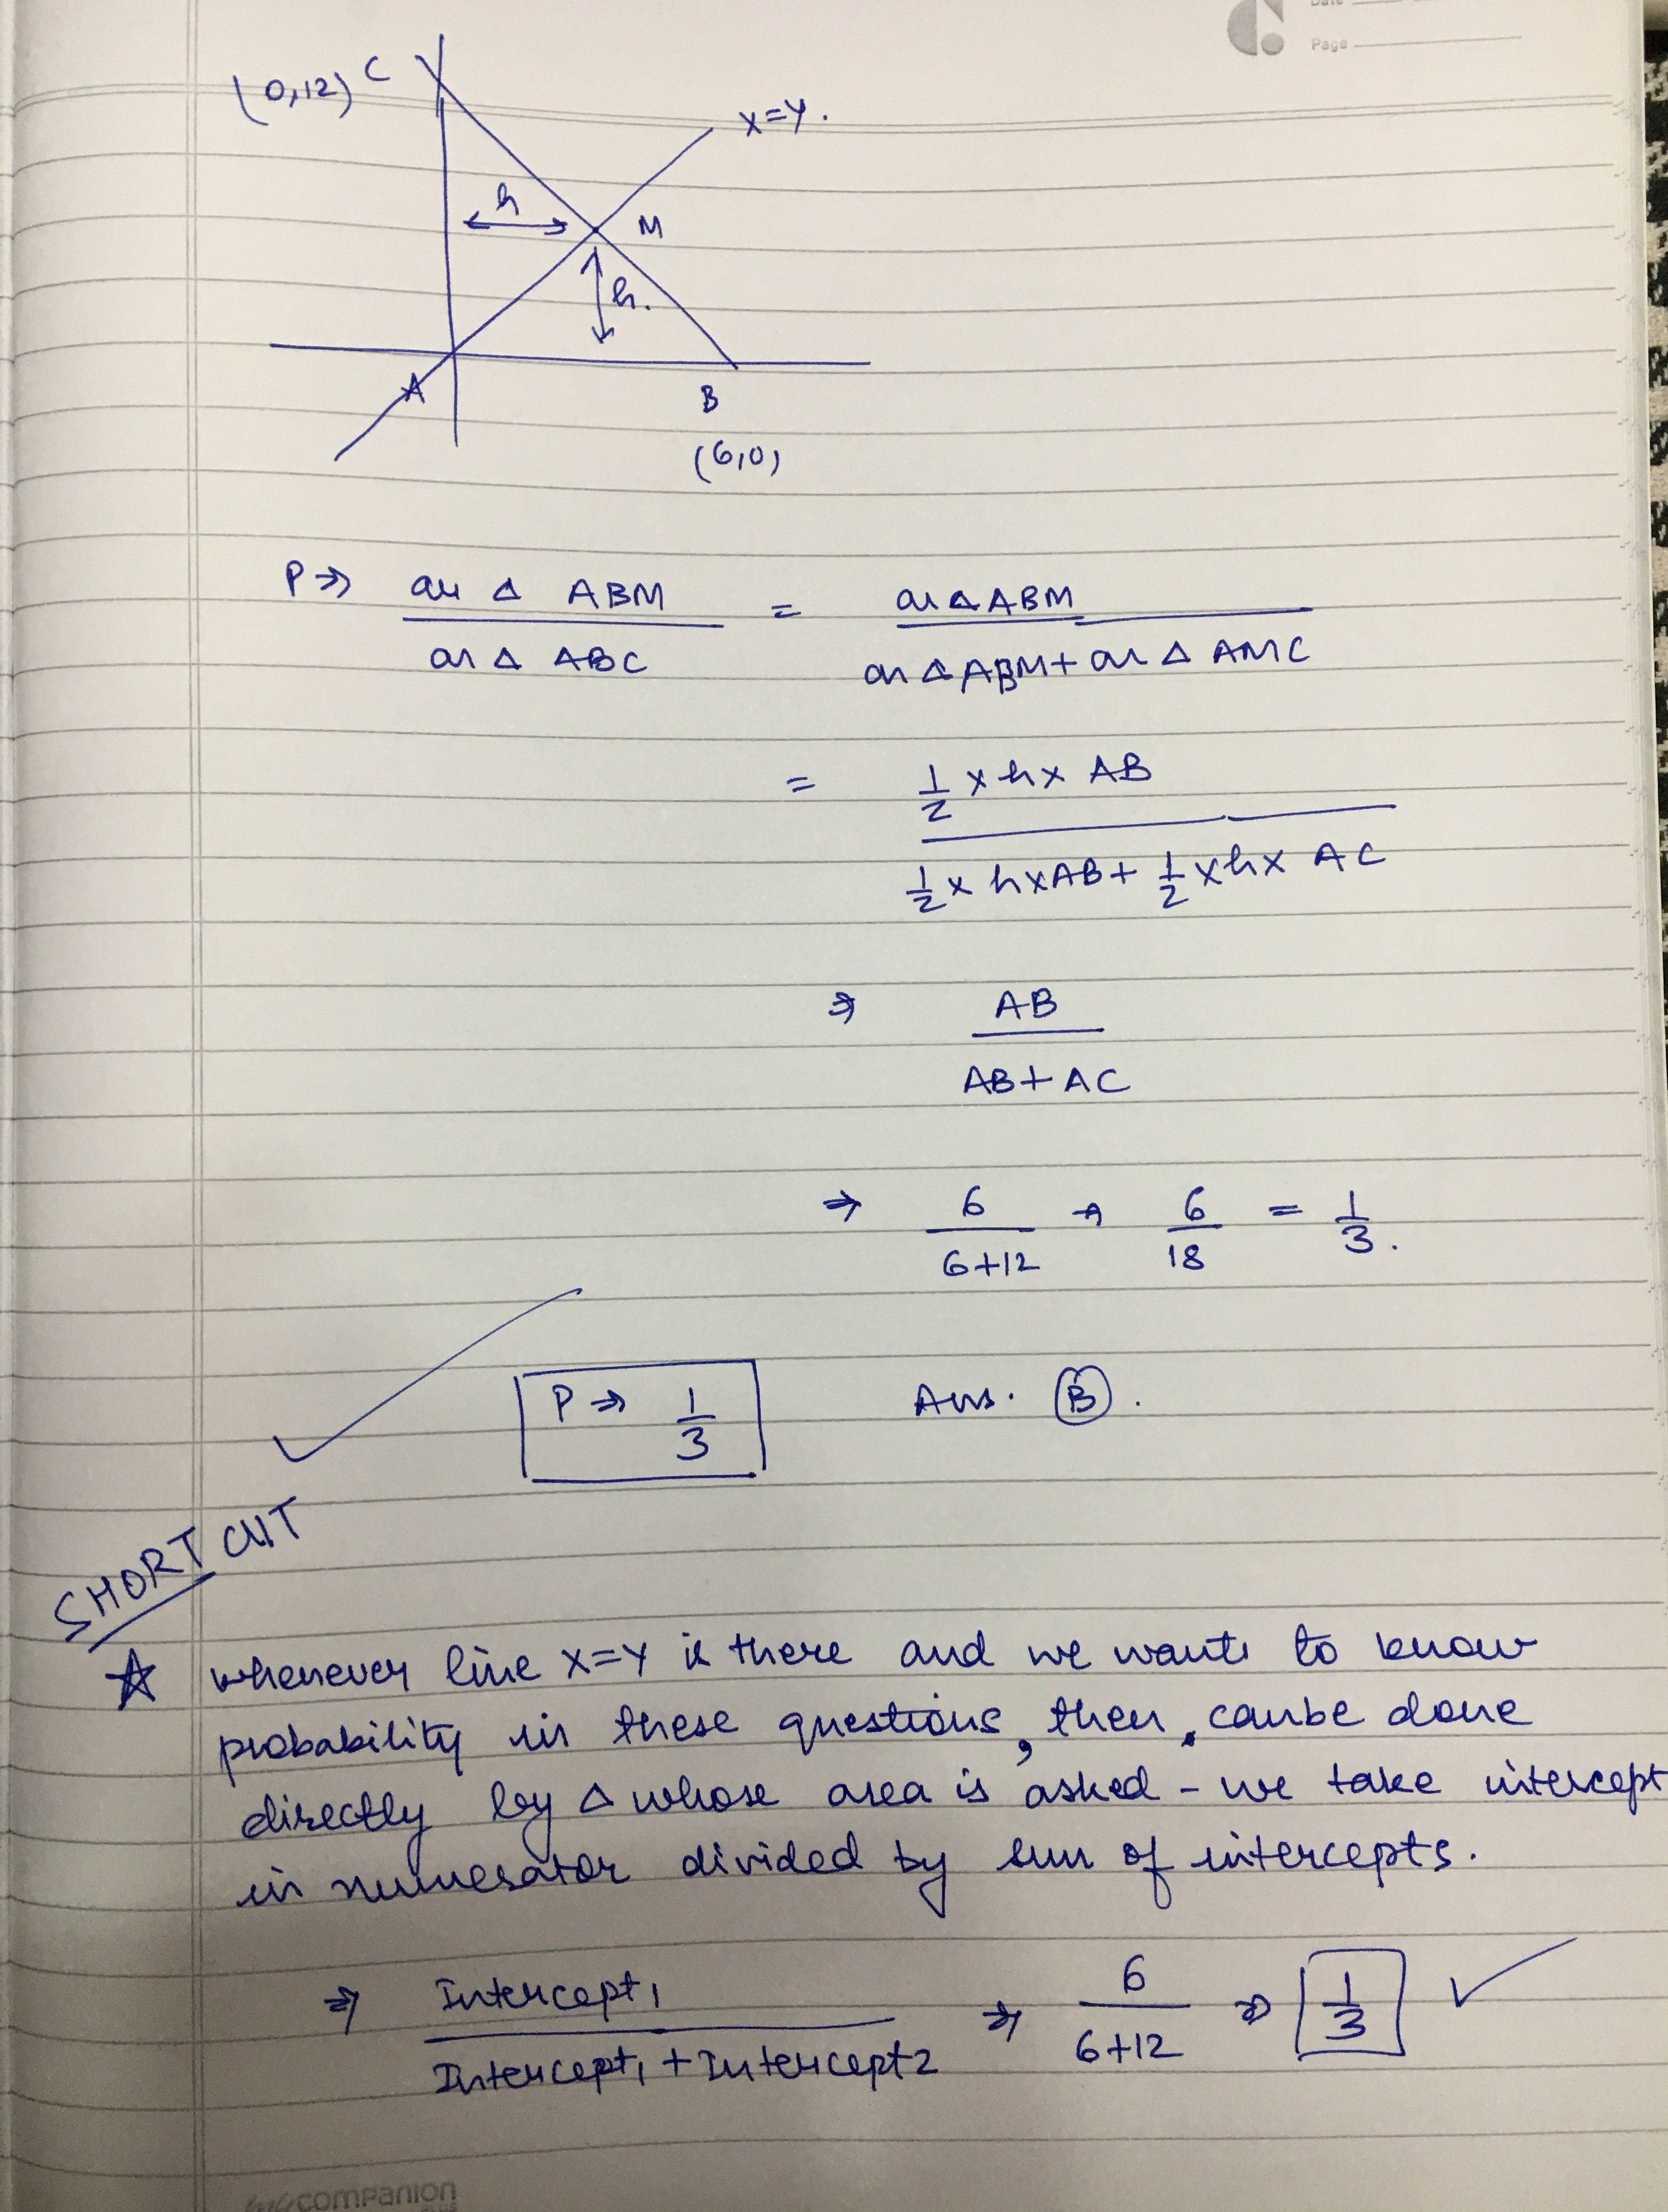 Date
Page
(0,12) C
x=y.
h
M
h.
A
B
(6,0)
P ⇒ ar Δ ABM / ar Δ ABC = ar Δ ABM / ar Δ ABM + ar Δ AMC
= 1/2 x h x AB / 1/2 x h x AB + 1/2 x h x AC
⇒ AB / AB + AC
⇒ 6 / 6+12 → 6 / 18 = 1/3.
P ⇒ 1/3 Ans. B.
SHORT CUT
☆ whenever line x=y is there and we wants to know
probability in these questions, then, can be done
directly by Δ whose area is asked - we take intercept
in numerator divided by sum of intercepts.
⇒ Intercept1 / Intercept1 + Intercept2 ⇒ 6 / 6+12 ⇒ 1/3 ✓
companion